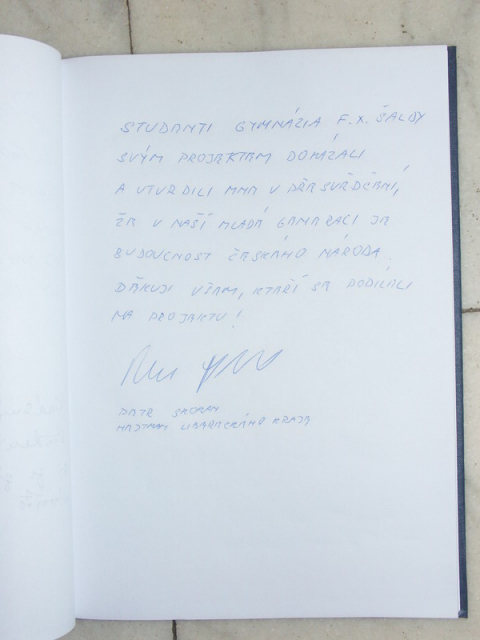 STUDENTI GYMNÁZIA F.X. ŠALDY
SVÝM PROJEKTEM DOKÁZALI
A UTVRDILI MNE V PŘESVĚDČENÍ,
ŽE V NAŠÍ MLADÉ GENERACI JE
BUDOUCNOST ČESKÉHO NÁRODA.
DĚKUJI VŠEM, KTEŘÍ SE PODÍLELI
NA PROJEKTU!
PETR SKOKAN
HEJTMAN LIBERECKÉHO KRAJE